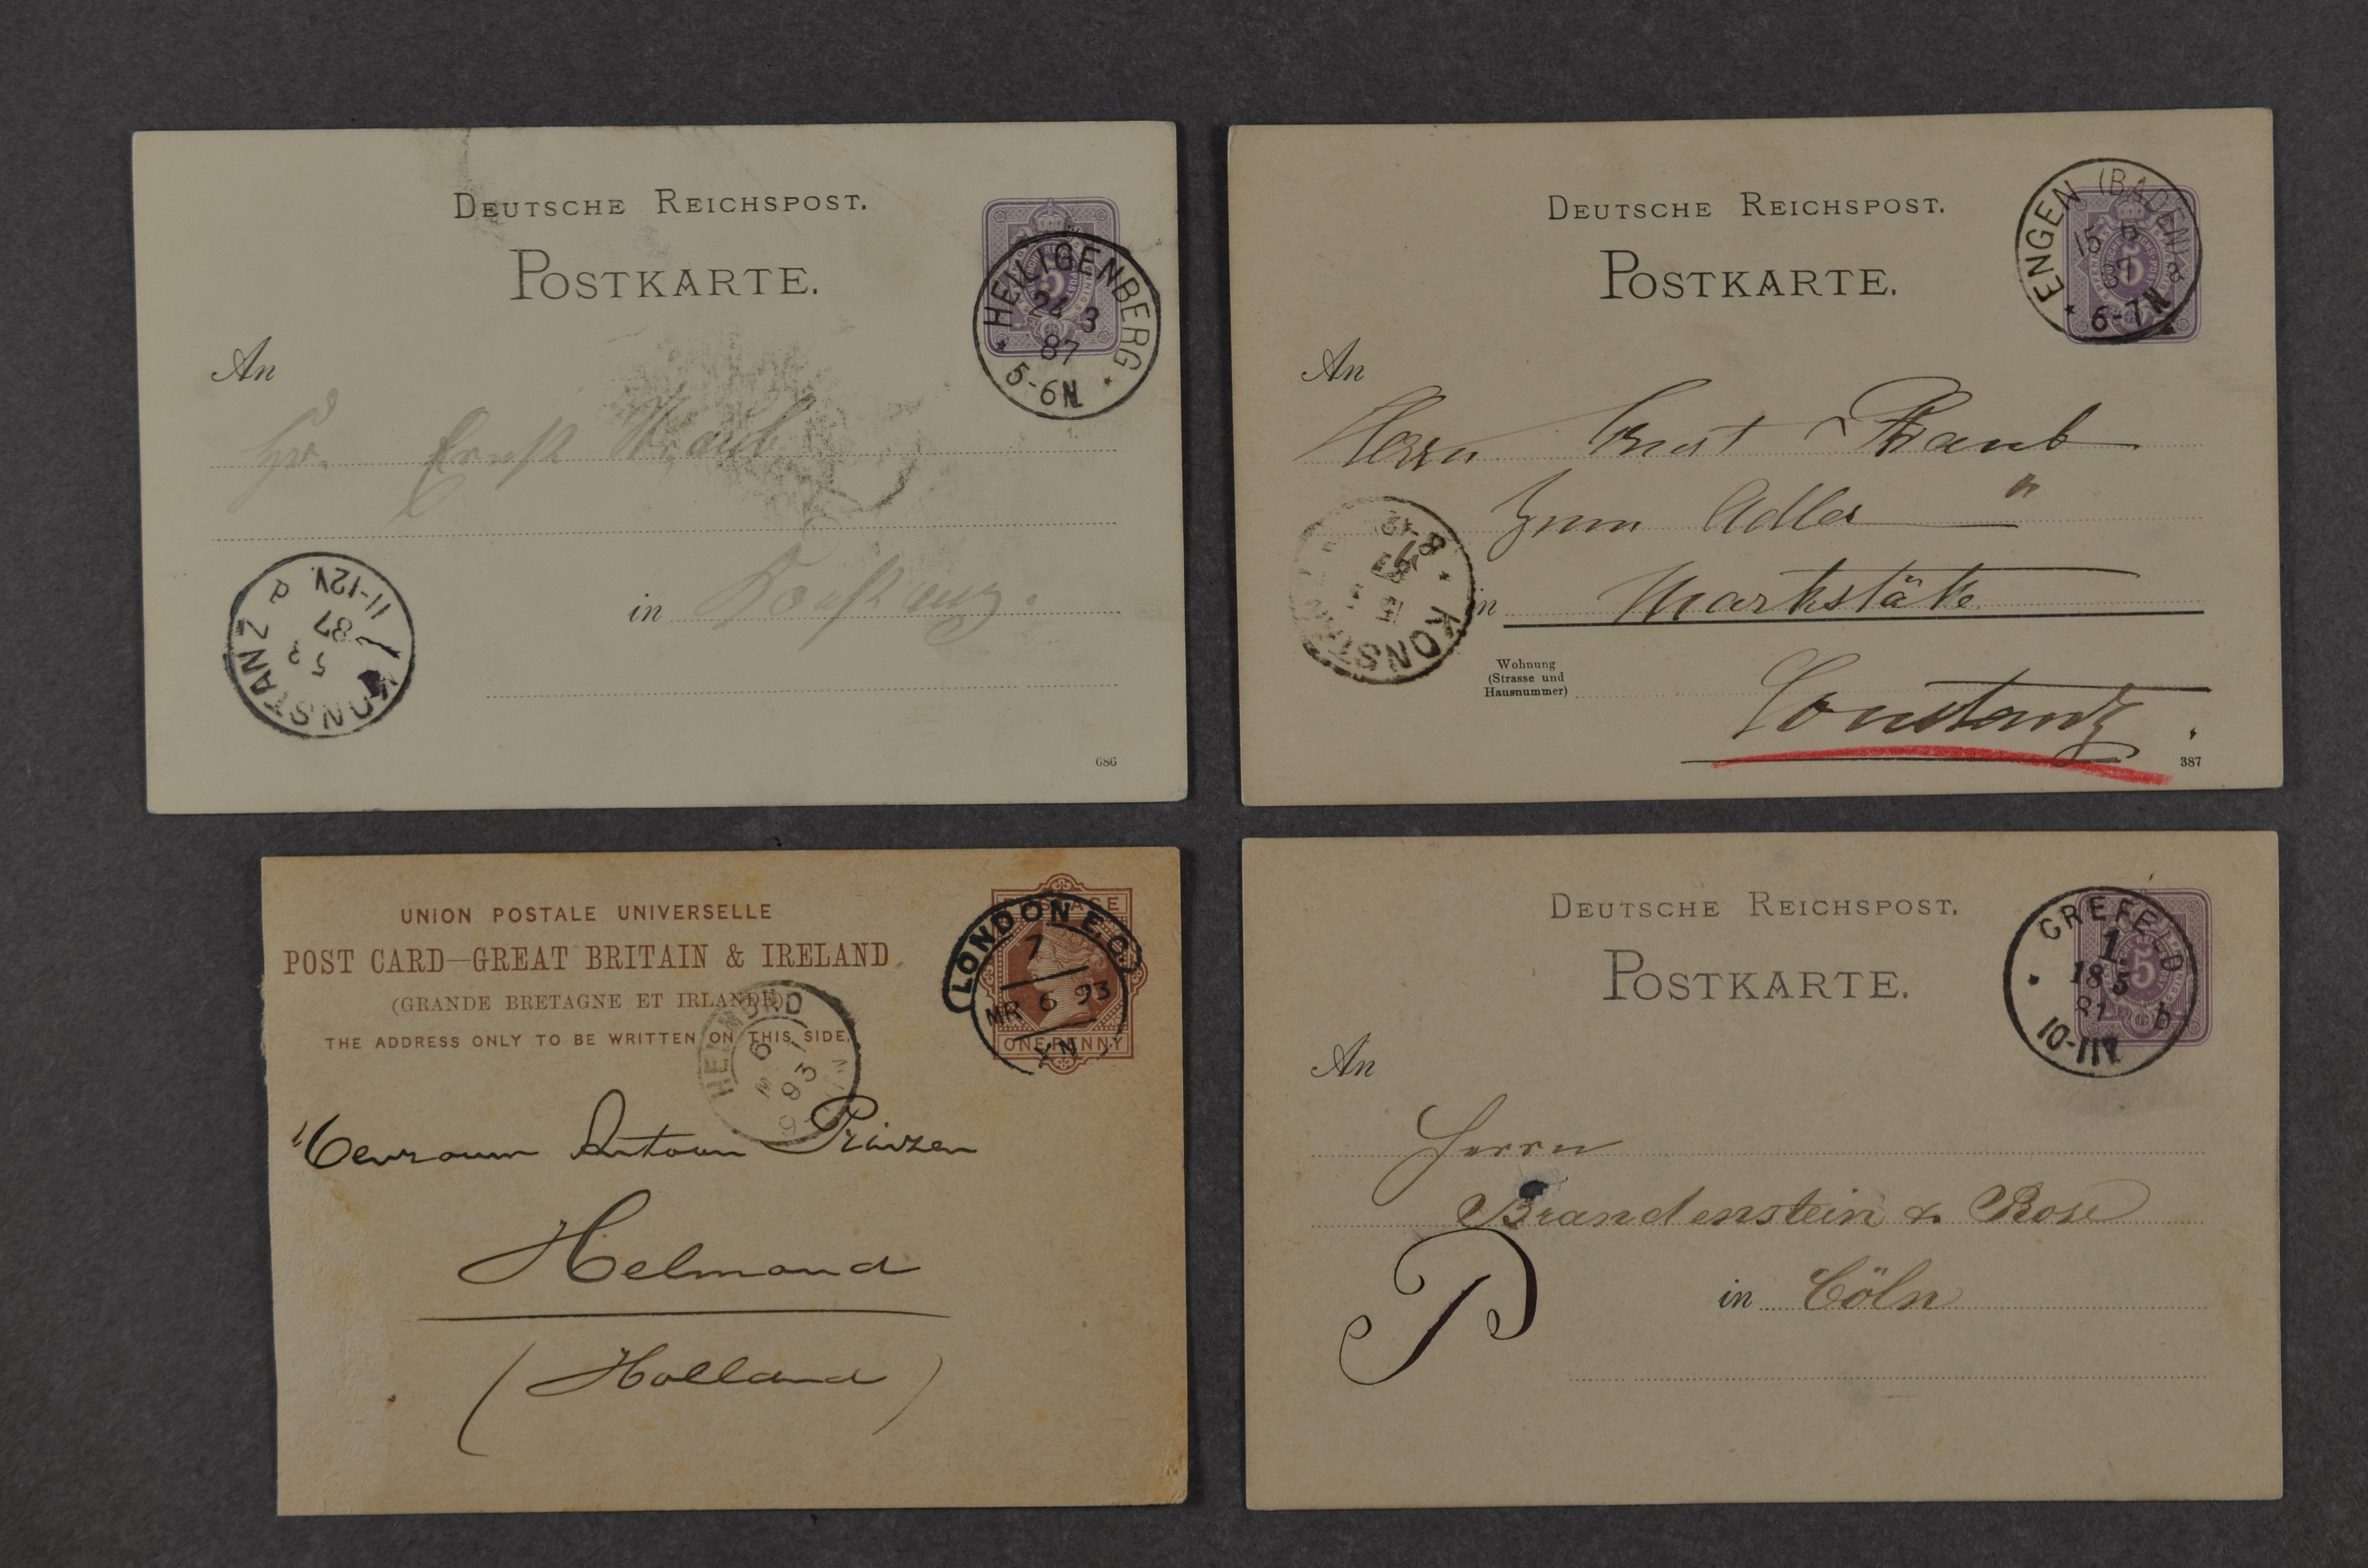 DEUTSCHE REICHSPOST.
POSTKARTE.
HEILIGENBERG
24 3
87
5-6N
An
Hr. Ernst Straub
in Konstanz.
KONSTANZ
87
11-12V.
d
686
DEUTSCHE REICHSPOST.
POSTKARTE.
ENGEN (BADEN)
15 5
87 a
6-7N
An
Herrn Ernst Straub
zum Adler "
in Markstäte
Wohnung
(Strasse und
Hausnummer)
Constanz
KONSTANZ
387
UNION POSTALE UNIVERSELLE
POST CARD—GREAT BRITAIN & IRELAND
(GRANDE BRETAGNE ET IRLANDE)
THE ADDRESS ONLY TO BE WRITTEN ON THIS SIDE.
POSTAGE
ONE PENNY
LONDON E.C.
7
MR 6 93
XN
HELMOND
93
Antoon Prinzen
Helmond
(Holland)
DEUTSCHE REICHSPOST.
POSTKARTE.
CREFELD
1
18 5
81 b
10-11V
An
Herrn
Brandenstein & Rose
P
in Cöln